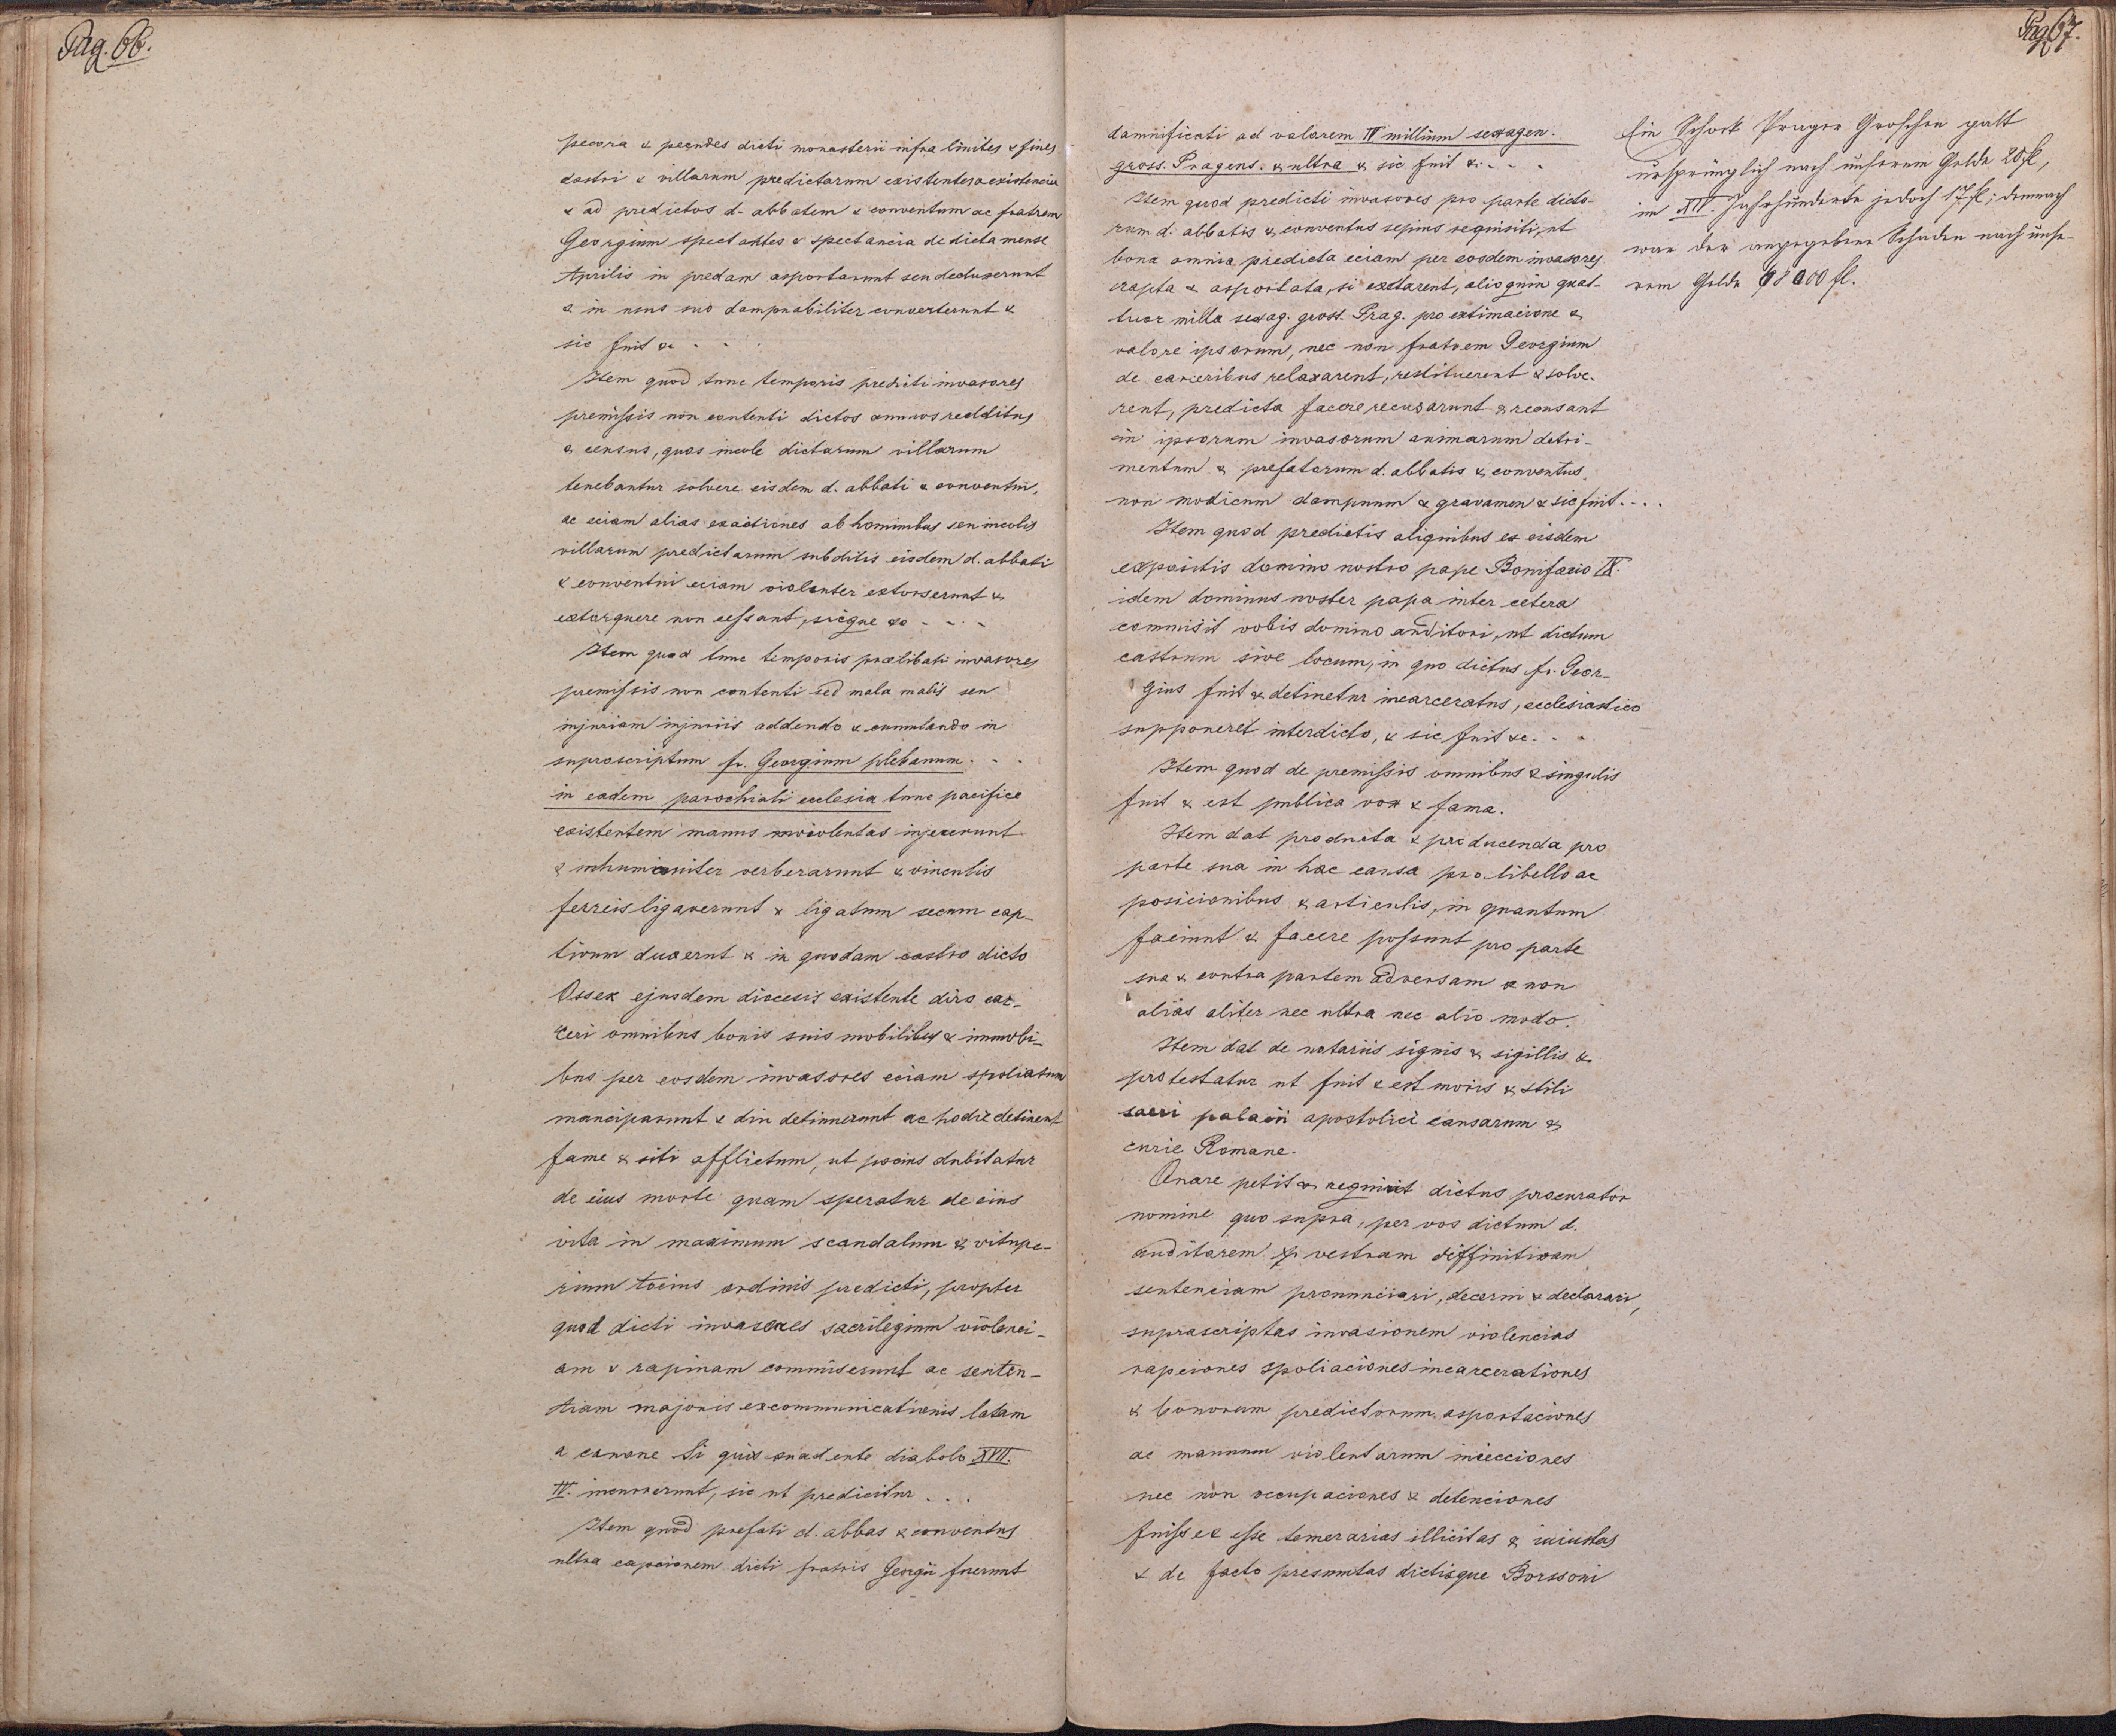 Pag. 66.
pecora & pecudes dicti monasterii infra limites & fines
castri & villarum predictarum existentes & existencia
& ad predictos d. abbatem & conventum ac fratrem
Georgium spectantes & spectancia de dicta mense
Aprilis in predam asportarunt seu deduxerunt
& in usus suo dampnabiliter converterunt &
sic fuit &c . . .
Item quod tunc temporis predicti invasores
premissis non contenti dictos annuos redditus
& census, quos incole dictarum villarum
tenebantur solvere eisdem d. abbati & conventui,
ac eciam alias exactiones ab hominibus seu incolis
villarum predictarum subditis eisdem d. abbati
& conventui eciam violenter extorserunt &
extorquere non cessant, sicque &c . . . .
Item quod tunc temporis prælibati invasores
premissis non contenti sed mala malis seu
injuriam injuriis addendo & cumulando in
suprascriptum fr. Georgium plebanum . . .
in eadem parochiali ecclesia tunc pacifice
existentem manus violentas injecerunt
& inhumaniter verberarunt & vinculis
ferreis ligaverunt & ligatum secum cap-
tivum duxernt & in quodam castro dicto
Ossek ejusdem diocesis existente diro car-
ceri omnibus bonis suis mobilibus & immobi-
bus per eosdem invasores eciam spoliatum
manciparunt & diu detinuerunt ac hodie detinent
fame & siti afflictum, ut pocius dubitatur
de eius morte quam speratur de eius
vita in maximum scandalum & vitupe-
rium tocius ordinis predicti, propter
quod dicti invasores sacrilegium violenci-
am & rapinam commiserunt ac senten-
tiam majoris excommunicationis latam
a canone Si quis suadente diabolo XVII.
IV. incurrerunt, sic ut predicitur . . .
Item quod prefati d. abbas & conventus
ultra capcionem dicti fratris Georgii fuerunt
Pag. 67.
damnificati ad valorem IV millium sexagen.
gross. Pragens. & ultra & sic fuit & . . .
Item quod predicti invasores pro parte dicto-
rum d. abbatis & conventus sepius requisiti, ut
bona omnia predicta eciam per eosdem invasores
rapta & asportata, si exstarent, alioquin quat-
tuor millia sexag. gross. Prag. pro extimacione &
valore ipsorum, nec non fratrem Georgium
de carceribus relaxarent, restituerent & solve-
rent, predicta facere recusarunt & recusant
in ipsorum invasorum animarum detri-
mentum & prefatorum d. abbatis & conventus
non modicum dampnum & gravamen & sic fuit . . . .
Item quod predictis aliquibus ex eisdem
expositis domino nostro pape Bonifacio IX.
idem dominus noster papa inter cetera
commisit vobis domino auditori, ut dictum
castrum sive locum, in quo dictus fr. Geor-
gius fuit & detinetur incarceratus, ecclesiastico
supponeret interdicto, & sic fuit &c . . .
Item quod de premissis omnibus & singulis
fuit & est publica vox & fama.
Item dat producta & producenda pro
parte sua in hac causa pro libello ac
posicionibus & articulis, in quantum
faciunt & facere possunt pro parte
sua & contra partem adversam & non
alias aliter nec ultra nec alio modo.
Item dat de notariis signis & sigillis &
protestatur ut fuit & est moris & stili
sacri palacii apostolici causarum &
curie Romane.
Quare petit & requirit dictus procurator
nomine quo supra, per vos dictum d.
auditorem & p. vestram diffinitivam
sentenciam pronunciari, decerni & declarari,
suprascriptas invasionem violencias
rapciones spoliaciones incarcerationes
& bonorum predictorum asportaciones
ac manuum violentarum iniecciones
nec non occupaciones & detenciones
fuisse & esse temerarias illicitas & iniustas
& de facto presumtas dictisque Borssoni
Ein Schock Prager Groschen galt
ursprünglich nach unserem Gelde 20 fl,
im XIV Jahrhunderte jedoch 17 fl; demnach
war der angegebene Schaden nach unse-
rem Gelde 68000 fl.